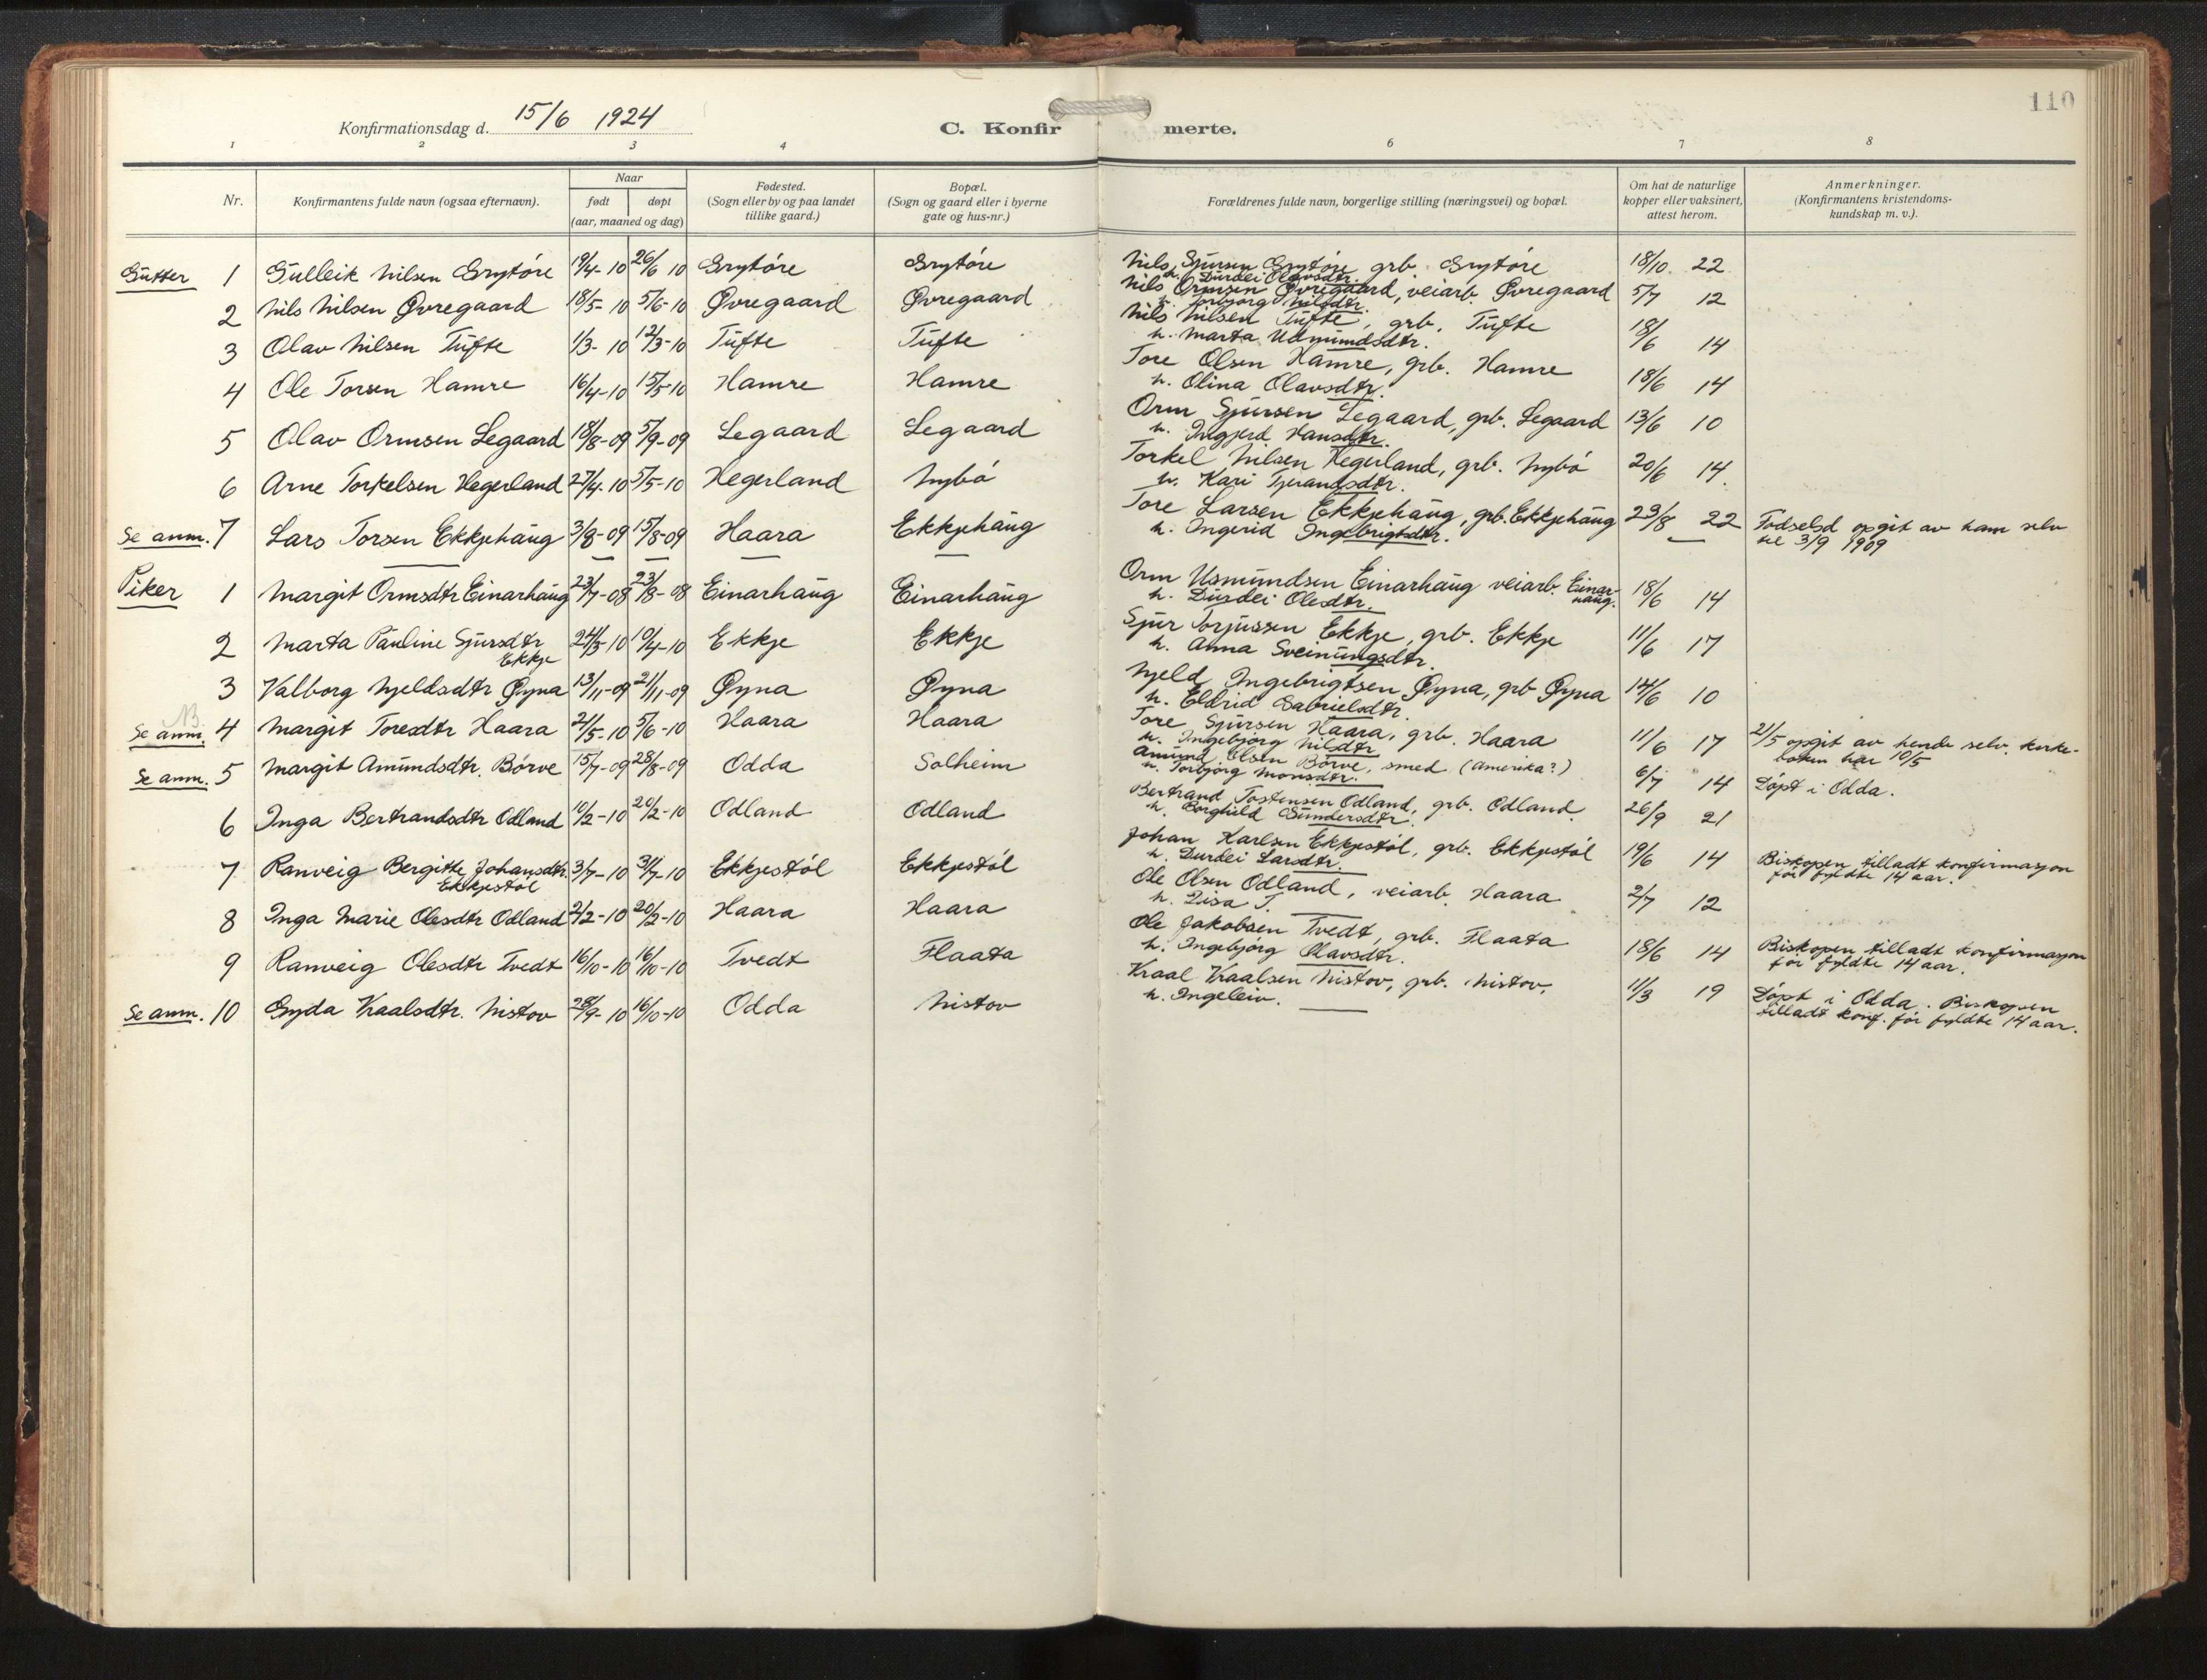 110
Konfirmationsdag d. 15/6 1924
C. Konfirmerte.
1 2 3 4 6 7 8
Nr.
Konfirmantens fulde navn (ogsaa efternavn).
Naar
født døpt
(aar, maaned og dag)
Fødested.
(Sogn eller by og paa landet
tillike gaard.)
Bopæl.
(Sogn og gaard eller i byerne
gate og hus-nr.)
Forældrenes fulde navn, borgerlige stilling (næringsvei) og bopæl.
Om hat de naturlige
kopper eller vaksinert,
attest herom.
Anmerkninger.
(Konfirmantens kristendoms-
kundskap m. v.).
Gutter 1 Gulleik Nilsen Grytøre 19/4-10 26/6 10 Grytøre Grytøre Nils Sjursen Grytøre grb. Grytøre 18/10. 22
h. Durdei Olavsdtr.
2 Nils Nilsen Øvregaard 18/5-10 5/6-10 Øvregaard Øvregaard Nils Ormsen Øvregaard, veiarb. Øvregaard 5/7 12
h. Torbjørg Nilsdtr.
3 Olav Nilsen Tufte 1/3-10 12/3-10 Tufte Tufte Nils Nilsen Tufte, grb. Tufte 18/6 14
h. Marta Udmundsdtr.
4 Ole Torsen Hamre 16/4-10 15/5-10 Hamre Hamre Tore Olsen Hamre, grb. Hamre 18/6 14
h. Olina Olavsdtr.
5 Olav Ormsen Legaard 18/8-09 5/9-09 Legaard Legaard Orm Sjursen Legaard, grb. Legaard 13/6 10
h. Ingjerd Hansdtr.
6 Arne Torkelsen Hegerland 27/4-10 5/5-10 Hegerland Nybø Torkel Nilsen Hegerland, grb. Nybø 20/6 14.
h. Kari Tjerandsdtr.
Se anm. 7 Lars Torsen Ekkjehaug 3/8-09 15/8-09 Haara Ekkjehaug Tore Larsen Ekkjehaug, grb. Ekkjehaug 29/8 22 Fødselsd opgit av ham selv
h. Ingerid Ingebrigtsdtr. til 3/9 1909
Piker 1 Margit Ormsdtr Einarhaug 23/7-08 23/8-08 Einarhaug Einarhaug Orm Usmundsen Einarhaug veiarb. Einar- 18/6 14
h. Durdei Olesdtr. haug.
2 Marta Pauline Sjursdtr 24/3-10 10/4-10 Ekkje Ekkje Sjur Torjussen Ekkje, grb. Ekkje 11/6 17
Ekkje h. Anna Sveinungsdtr.
3 Valborg Njeldsdtr Øyna 13/11-09 21/11-09 Øyna Øyna Njeld Ingebrigtsen Øyna, grb Øyna 14/6 10
h. Eldrid Gabrielsdtr.
NB.
Se anm. 4 Margit Toresdtr Haara 21/5-10 5/6-10 Haara Haara Tore Sjursen Haara, grb. Haara 11/6 17 21/5 opgit av hende selv. Kirke-
h. Ingebjørg Nilsdtr boken har 10/5
Se anm. 5 Margit Amundsdtr. Børve 15/7-09 28/8-09 Odda Solheim Amund Olsen Børve, smed (Amerika?) 6/7 14 Døpt i Odda.
h. Torbjørg Monsdtr.
6 Inga Bertrandsdtr Odland 10/2-10 20/2-10 Odland Odland Bertrand Tostensen Odland, grb. Odland. 26/9 21
h. Borghild Gundersdtr.
7 Ranveig Bergitte Johansdtr. 3/7-10 31/7-10 Ekkjestøl Ekkjestøl Johan Karlsen Ekkjestøl, grb. Ekkjestøl 19/6 14 Biskopen tilladt konfirmasjon
Ekkjestøl h. Durdei Larsdtr. før fyldte 14 aar.
8 Inga Marie Olesdtr Odland 2/2-10 20/2-10 Haara Haara Ole Olsen Odland, veiarb. Haara 2/7 12
h. Lisa T.
9 Ranveig Olesdtr Tvedt 16/10-10 16/10-10 Tvedt Flaata Ole Jakobsen Tvedt, grb. Flaata 18/6 14 Biskopen tilladt konfirmasjon
h. Ingebjørg Olavsdtr. før fyldte 14 aar.
Se anm. 10 Gyda Kraalsdtr. Nistov 28/9-10 16/10-10 Odda Nistov Kraal Kraalsen Nistov, grb. Nistov. 11/3 19 Døpt i Odda. Biskopen
h. Ingeleiv. tilladt konf. før fyldte 14 aar.